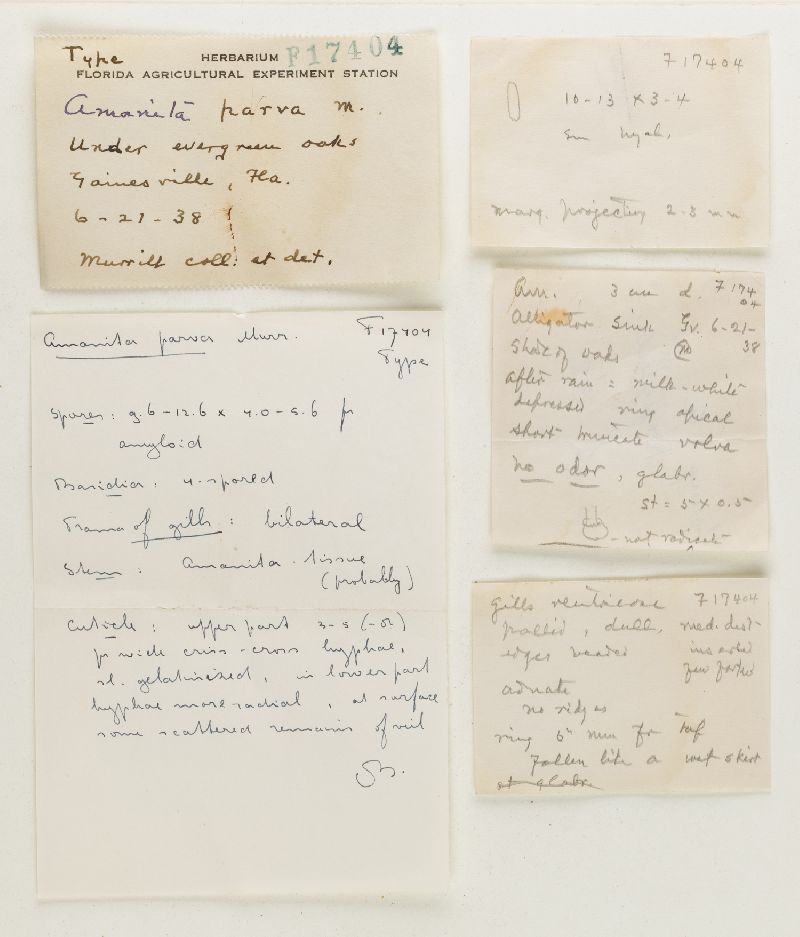 Type HERBARIUM F17404
FLORIDA AGRICULTURAL EXPERIMENT STATION
Amanita parva m.
Under evergreen oaks
Gainesville, Fla.
6-21-38
Murrill coll. et det.
Amanita parva Murr. F17404
Type
Spores: 9.6-12.6 x 4.0-5.6 µ
amyloid
Basidia: 4-spored
Trama of gills: bilateral
Stem: Amanita-tissue
(probably)
Cuticle: upper part 3-5 (-8)
µ wide criss-cross hyphae,
sl. gelatinized, in lower part
hyphae more radial, at surface
some scattered remains of veil
F17404
10-13 x 3-4
sm hyal.
marg. projecting 2-3 mm
Am. 3 cm d. F174
04
Alligator Sink Gv. 6-21-
38
Shade of oaks
after rain: milk-white
depressed ring apical
short truncate volva
no odor, glabr.
st = 5 x 0.5
- not radicate
gills ventricose F17404
pallid, dull, med. dist-
edges inserted
few forked
adnate
no ridges
ring 5 mm fr top
Fallen like a wet skirt
st glabr.